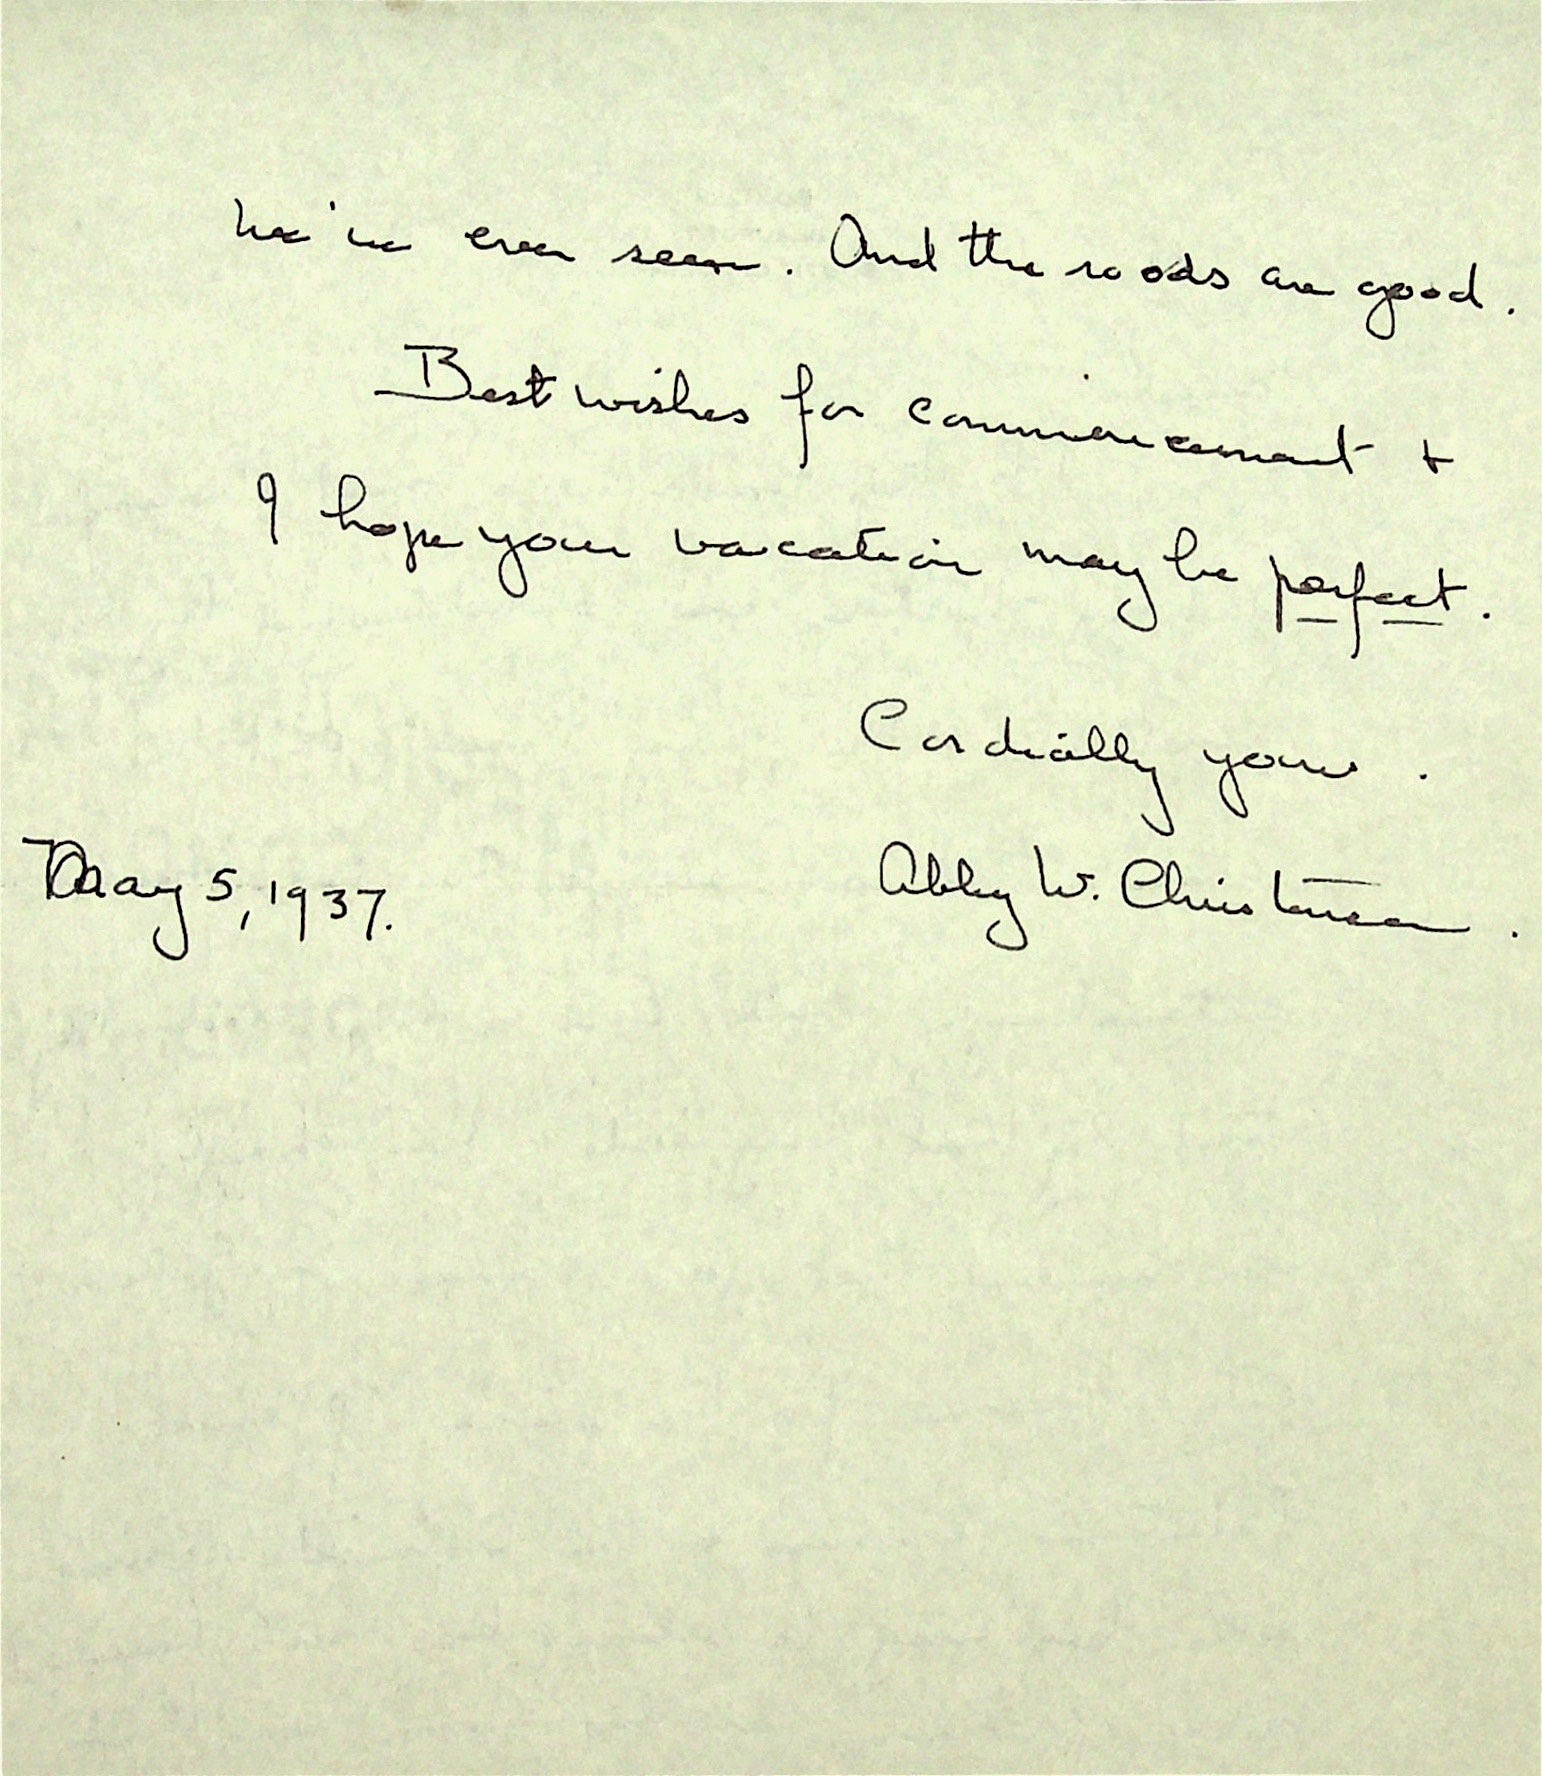 we've ever seen. And the roads are good.
Best wishes for commencement +
I hope your vacation may be perfect.
Cordially yours.
May 5, 1937.
Abby W. Christensen.